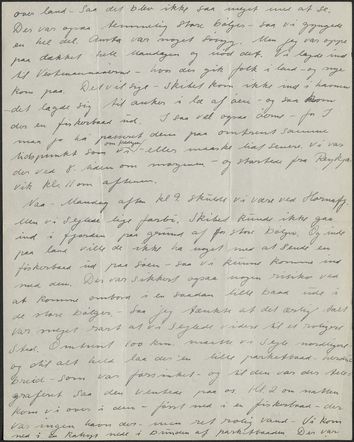 over land. Saa det blev ikke saa meget med at se.
Der var ogsaa temmelig store bølger - saa vi gyngede
en hel del. Anita var noget søsyg. Men jeg var oppe
paa dækket hele Mandagen og nød det. Vi lagde ind
til Vestmannaøerne - hvor der gik folk i land - og nye
kom paa. Det vil sige - Skibet kom ikke ind i havnen
- det lagde sig til ankers i læ af øen - og saa kom
der en fiskerbaad ud. I saa vel ogsaa dem - for I
maa jo ha passeret dem paa omtrent samme
tidspunkt som vi - eller maaske lidt senere. Vi var
der ved 8 tiden om morgenen - og startede fra Reykja-
vik kl. 11 om aftenen.
Naa - Mandag aften kl 9 skulde vi være ved Hornafj.
Men vi sejlede lige forbi. Skibet kunde ikke gaa
ind i fjorden paa grund af for store bølger. Og inde
paa land vilde de ikke ha noget med at sende en
fiskerbaad ud paa søen - saa vi kunne komme ind
med den. Der var sikkert ogsaa nogen risiko ved
at komme ombord i en saadan lille baad ude i
de store bølger - saa jeg tænkte at det ærlig talt
var meget rart at vi sejlede videre til et roligere
sted. Omtrent 100 km maatte vi sejle nordligere
og stil alt held laa der en lille
- som var forsinket - og til den var der tele-
graferet saa den ventede paa os. Kl 2 om natten
kom vi over i den - først ned i en fiskerbaad - der
var ingen havn der - men ret rolig vand - Vi kom
ned i en nede i bunden af Den var